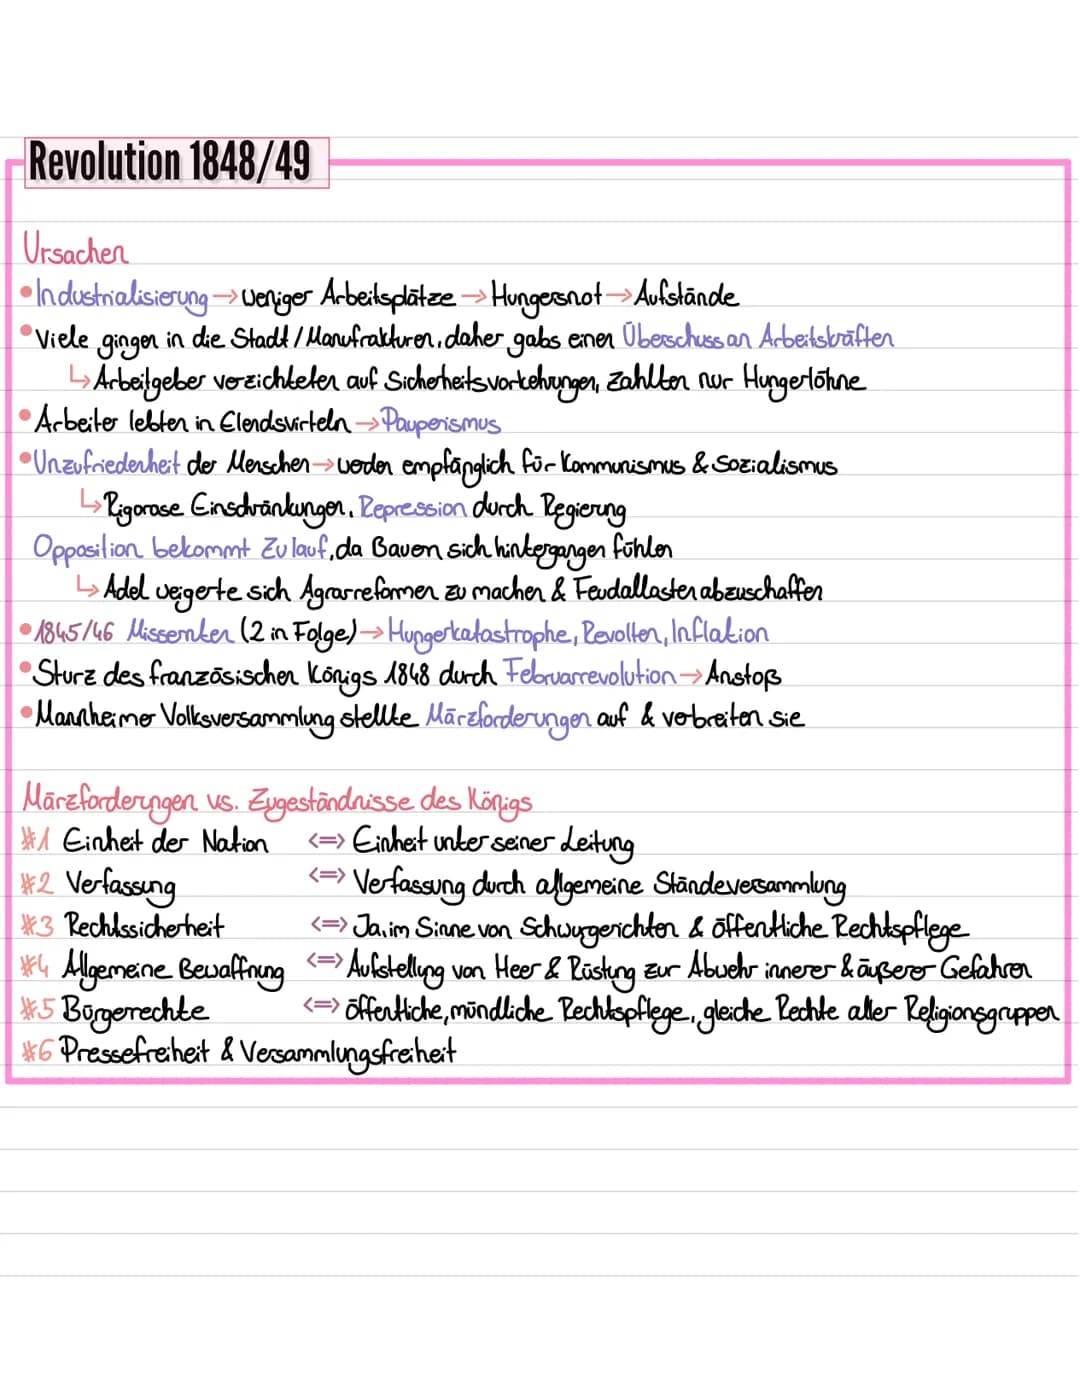 Revolution 1848/49
Ursachen
• Industrialisierung → weniger Arbeitsplätze → Hungersnot → Aufstände
• Viele gingen in die Stadt / Manufrakturen, daher gabs einen Überschuss an Arbeitskräften
↳ Arbeitgeber verzichteten auf Sicherheitsvorkehrungen, zahlten nur Hungerlöhne
• Arbeiter lebten in Elendsvirteln → Pauperismus
• Unzufriedenheit der Menschen → werden empfänglich für Kommunismus & Sozialismus
↳ Rigorose Einschränkungen, Repression durch Regierung
Opposition bekommt Zulauf, da Bauern sich hintergangen fühlen
↳ Adel weigerte sich Agrarreformen zu machen & Feudallasten abzuschaffen
• 1845/46 Missernten (2 in Folge) → Hungerkatastrophe, Revolten, Inflation
• Sturz des französischen Königs 1848 durch Februarrevolution → Anstoß
• Mannheimer Volksversammlung stellte Märzforderungen auf & verbreiten sie
Märzforderungen vs. Zugeständnisse des Königs
#1 Einheit der Nation <=> Einheit unter seiner Leitung
#2 Verfassung <=> Verfassung durch allgemeine Ständeversammlung
#3 Rechtssicherheit <=> Ja, im Sinne von Schwurgerichten & öffentliche Rechtspflege
#4 Allgemeine Bewaffnung <=> Aufstellung von Heer & Rüstung zur Abwehr innerer & äußerer Gefahren
#5 Bürgerrechte <=> öffentliche, mündliche Rechtspflege, gleiche Rechte aller Religionsgruppen
#6 Pressefreiheit & Versammlungsfreiheit